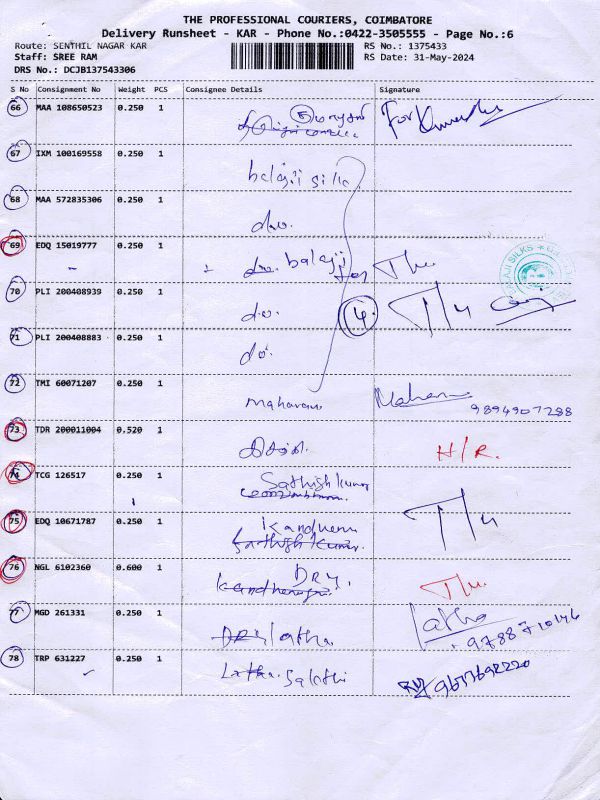 THE PROFESSIONAL COURIERS, COIMBATORE
Delivery Runsheet - KAR - Phone No.:0422-3505555 - Page No.:6
Route: SENTHIL NAGAR KAR RS No.: 1375433
Staff: SREE RAM RS Date: 31-May-2024
DRS No.: DCJB137543306
S No Consignment No Weight PCS Consignee Details Signature
66 MAA 108650523 0.250 1 For
67 IXM 100169558 0.250 1 balaji silk
68 MAA 572835306 0.250 1 do.
69 EDQ 15019777 0.250 1 do. balaji for
70 PLI 200408939 0.250 1 do. 4
71 PLI 200408883 0.250 1 do.
72 TMI 60071207 0.250 1 9894907288
73 TDR 200011004 0.520 1 H/R.
74 TCG 126517 0.250 1 Sathish kumar
75 EDQ 10671787 0.250 1 Sathish kumar
76 NGL 6102360 0.600 1 DRY.
77 MGD 261331 0.250 1 DRY latha latha
78 TRP 631227 0.250 1 Latha